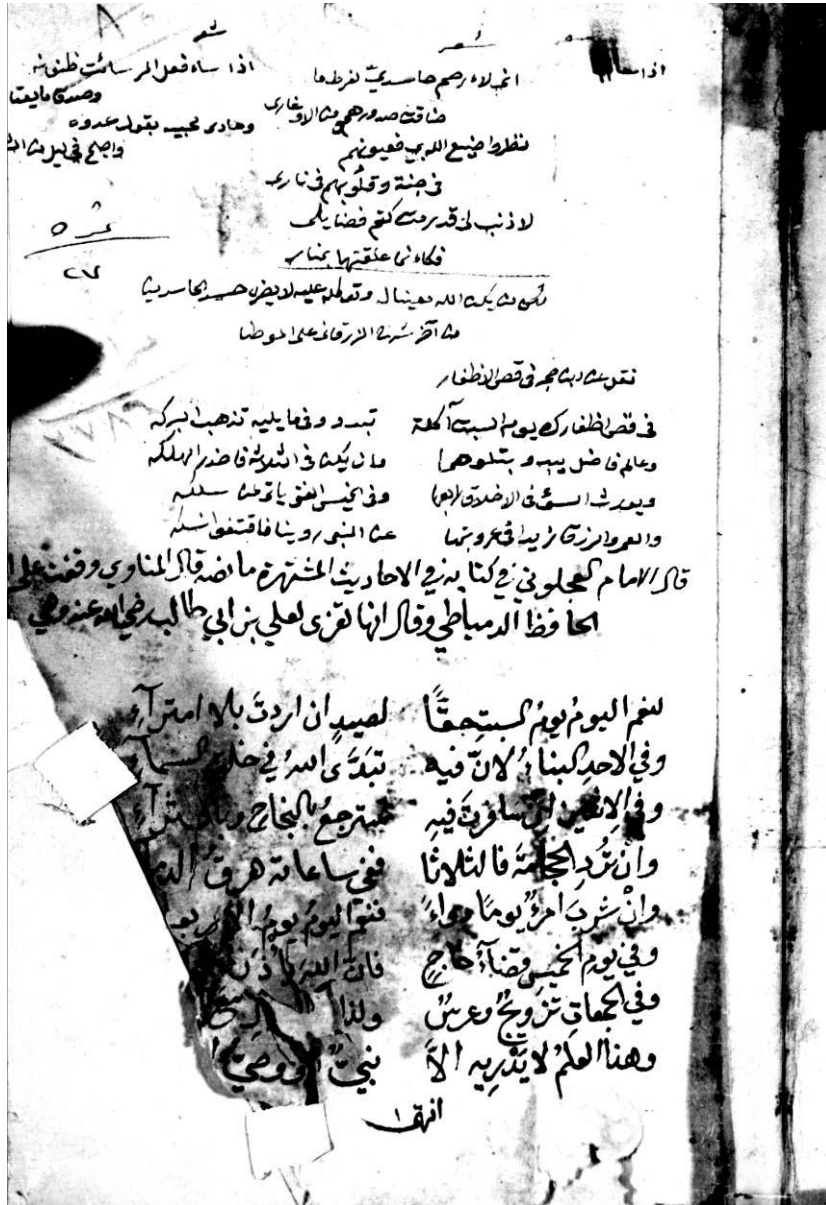 شعر
اذا ساء فعل المرء سائت ظنونه
وصدق ما يعتا
وعادى محبيه بقول عدوه
واصبح في ليل من ال
شعر
اني لارحم حاسدي لفرط ما
ضاقت صدورهم من الاوغارى
نظروا صنيع الله بي فعيونهم
في جنة وقلوبهم في نارى
لا ذنب لي قد رمت كتم فضايلى
فكاءنما علقتها بمنار
لكن من يكن الله معينا له وتوكله عليه لا يضره حسد الحاسدين
من آخر شرح الزرقاني على الموطا
نقل عن ابن حجر في قص الاظفار
في قص اظفارك يوم السبت آكلة تبدو وفيما يليه تذهب البركه
وعالم فاضل يبدو بتلوهما وان يكن في الثلاثا فاحذر الهلكه
ويورث السوء في الاخلاق رابعها وفى الخميس الغنى ياتى لمن سلكه
والعمر والرزق زيدا في عروبتها عن النبي روينا فاقتفوا نسكه
قال الامام العجلوني في كتابه في الاحاديث المشتهرة ما نصه قال المناوي وقفت على
الحافظ الدمياطي وقال انها تعزى لعلي بن ابي طالب رضي الله عنه وهي
لنعم اليومُ يومُ السبت حقًّا لصيدٍ ان اردتَ بلا امترآءِ
وفي الاحد البناءُ لانّ فيه تبدّى اللهُ في خلق السمآءِ
وفي الاثنين ان سافرتَ فيهِ سترجعُ بالنجاح وبا
وانْ تُرِدِ الحجامةَ فالثلاثا ففي ساعاته هرقُ الدما
وانْ شربَ امرءٌ يومًا دواءً فنعم اليومُ يومُ الاربعا
وفي يوم الخميسِ قضآءُ حاجٍ فانّ اللهَ يأذن
وفي الجمعاتِ تزويجٌ وعرسٌ ولذا
وهذا العلمُ لا يَدْرِيه الاّ نبيٌّ او وصيّ
انتهى